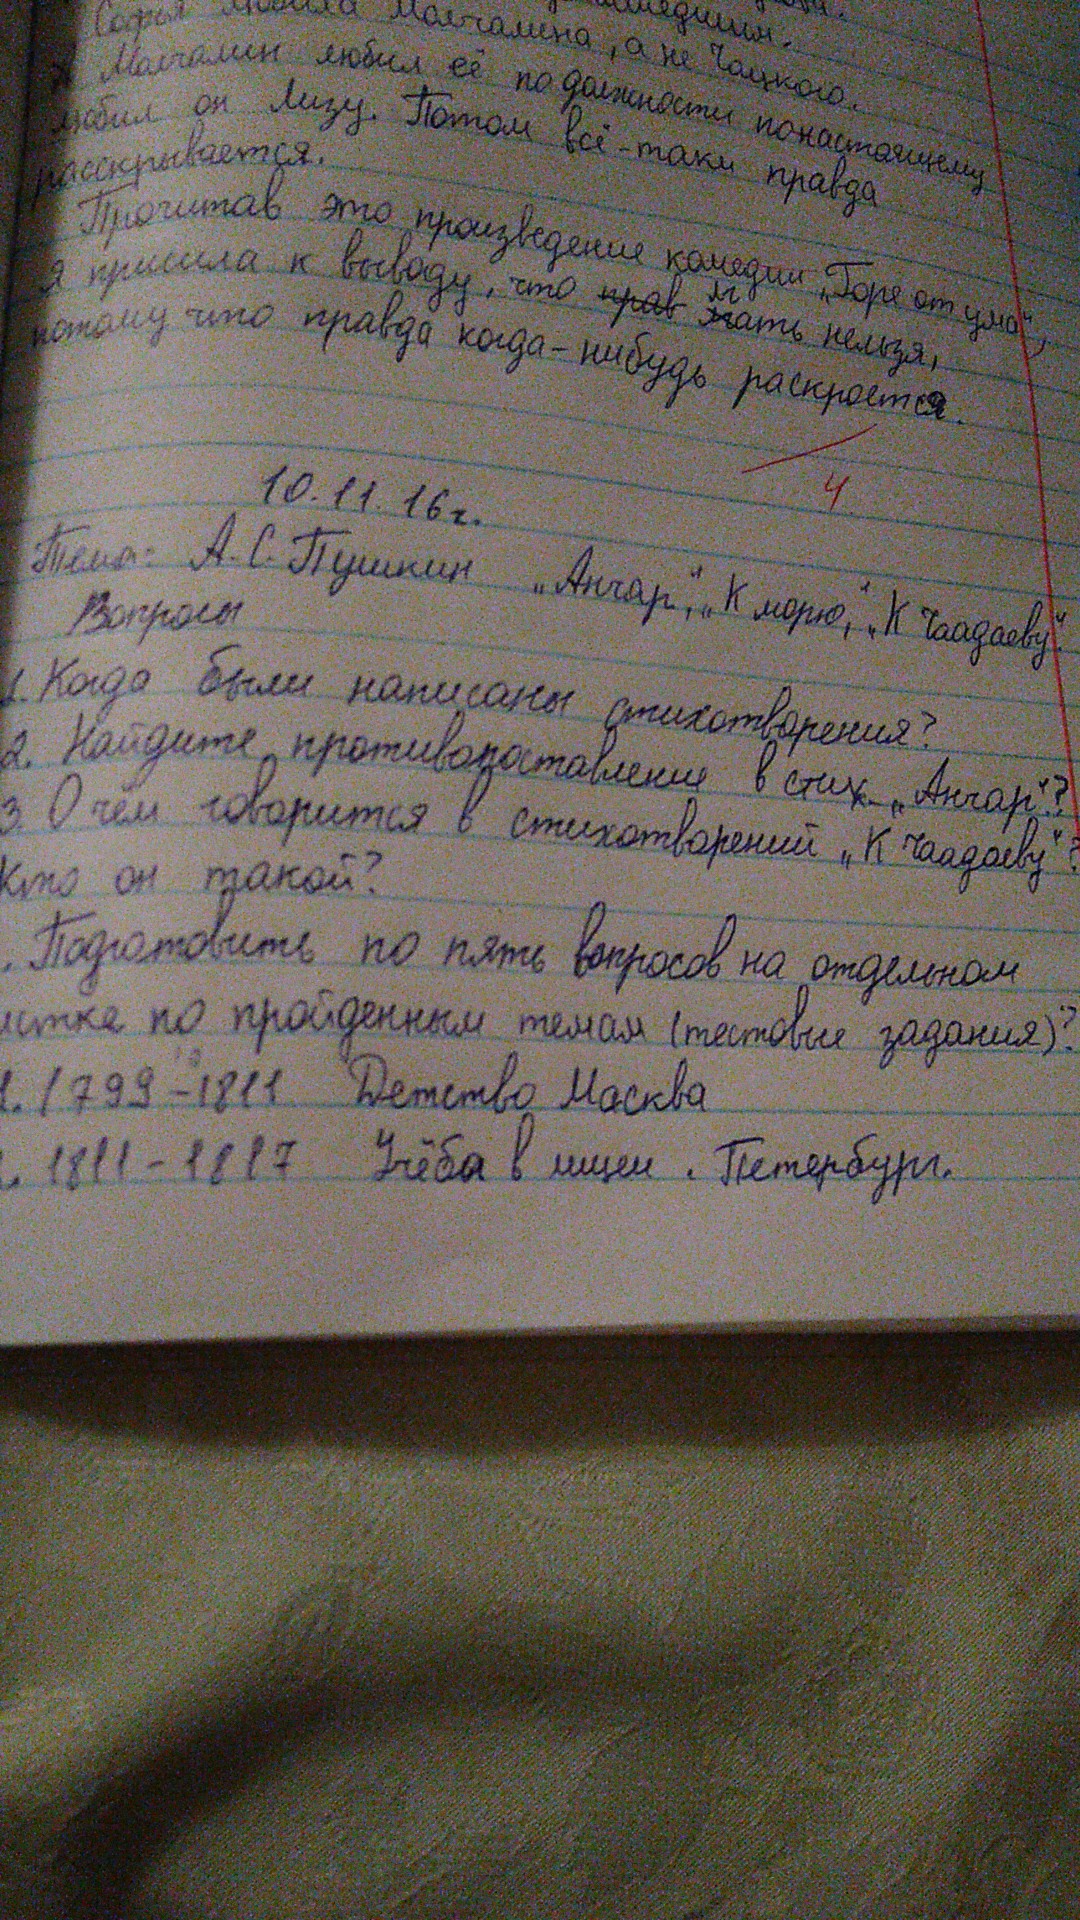 Софья любила Молчалина, а не Чацкого.
Молчалин любил её по должности понастоящему
любил он Лизу. Потом всё-таки правда
расскрывается.
Прочитав это произведение комедии „Горе от ума",
я пришла к выводу, что прав лгать нельзя,
потому что правда когда-нибудь раскроется.
4
10.11.16г.
Тема: А.С.Пушкин „Анчар", „К морю", „К Чаадаеву".
Вопросы
1. Когда были написаны стихотворения?
2. Найдите противопоставление в стих. „Анчар"?
3. О чём говорится в стихотворений „К Чаадаеву"?
Кто он такой?
. Подготовить по пять вопросов на отдельном
истке по пройденным темам (тестовые задания)?
1. 1799-1811 Детство Москва
. 1811-1817 Учёба в лицеи. Петербург.